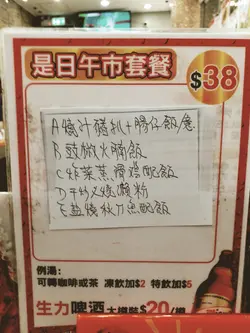 是日午市套餐
$38
A燒汁豬扒+腸仔飯/意
B豉椒火腩飯
C榨菜蒸滑鸡配飯
D干炒叉燒瀨粉
E盐燒秋刀魚配飯
例湯:
可轉咖啡或茶 凍飲加$2 特飲加$5
生力啤酒 大樽裝$20/樽